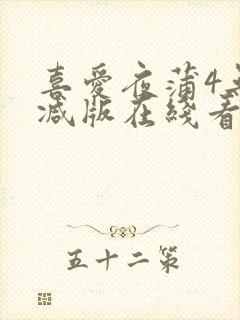 喜愛夜蒲4
减版在綫看
五十二策